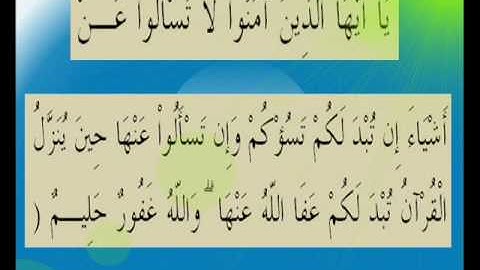 يَا أَيُّهَا الَّذِينَ آمَنُوا لَا تَسْأَلُوا عَنْ
أَشْيَاءَ إِن تُبْدَ لَكُمْ تَسُؤْكُمْ وَإِن تَسْأَلُواْ عَنْهَا حِينَ يُنَزَّلُ
الْقُرْآنُ تُبْدَ لَكُمْ عَفَا اللَّهُ عَنْهَا ۗ وَاللَّهُ غَفُورٌ حَلِيمٌ (